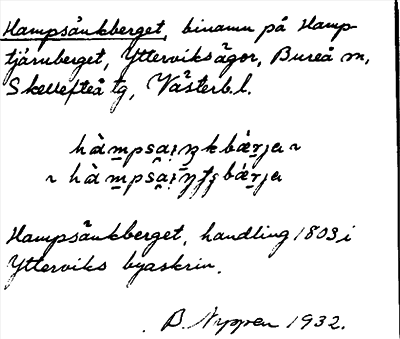 Hampsänkberget, binamn på Hamp-
tjärnberget, Ytterviks ägor, Bureå sn,
Skellefteå tg, Västerb. l.
hàm̱psa̱i̱ŋkbǽṟja ~
~ hàm̱psa̱i̱
Hampsänkberget, handling 1803 i
Ytterviks byaskrin.
B. Nyppen 1932.